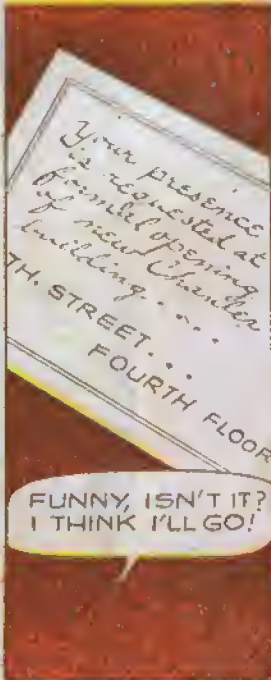 Your presence
is requested at
formal opening
of new Chanler
building....
7TH. STREET...
FOURTH FLOOR
FUNNY, ISN'T IT?
I THINK I'LL GO!